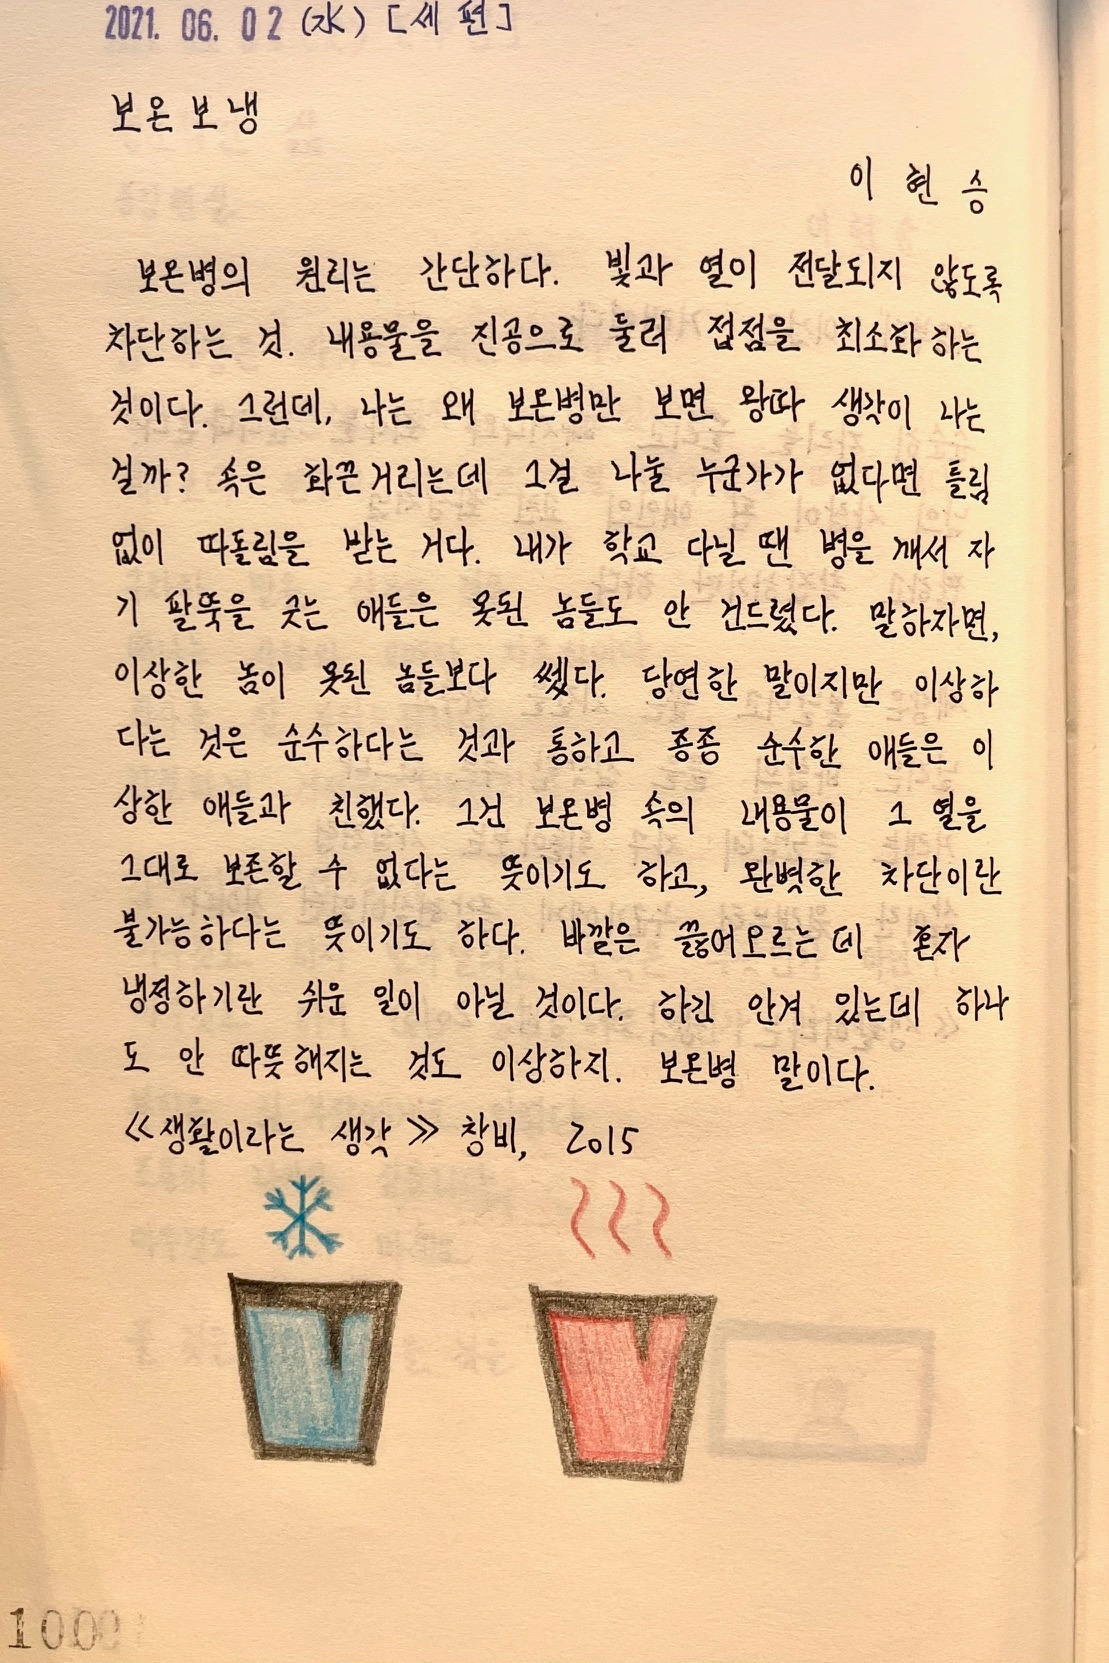 2021. 06. 02 (水) [세 편]
보온 보냉
이 현 승
보온병의 원리는 간단하다. 빛과 열이 전달되지 않도록
차단하는 것. 내용물을 진공으로 둘러 접점을 최소화 하는
것이다. 그런데, 나는 왜 보온병만 보면 왕따 생각이 나는
걸까? 속은 화끈거리는데 그걸 나눌 누군가가 없다면 틀림
없이 따돌림을 받는 거다. 내가 학교 다닐 땐 병을 깨서 자
기 팔뚝을 긋는 애들은 못된 놈들도 안 건드렸다. 말하자면,
이상한 놈이 못된 놈들보다 쎘다. 당연한 말이지만 이상하
다는 것은 순수하다는 것과 통하고 종종 순수한 애들은 이
상한 애들과 친했다. 그건 보온병 속의 내용물이 그 열을
그대로 보존할 수 없다는 뜻이기도 하고, 완벽한 차단이란
불가능하다는 뜻이기도 하다. 바깥은 끓어오르는데 혼자
냉정하기란 쉬운 일이 아닐 것이다. 하긴 안겨 있는데 하나
도 안 따뜻해지는 것도 이상하지. 보온병 말이다.
≪생활이라는 생각≫ 창비, 2015